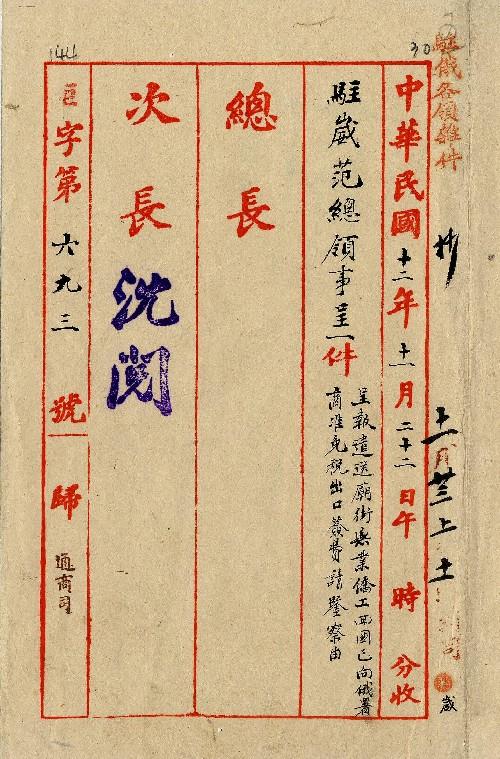 144
30
駐俄各領雜件
抄
十一月廿三上午
崴
中華民國十二年十一月二十二日午 時 分收
駐崴范總領事呈一件
呈報遣送廟街無業僑工回國已向俄署
商准免稅出口簽費請鑒察由
總長
次長
沈閱
字第六九三號歸
通商司